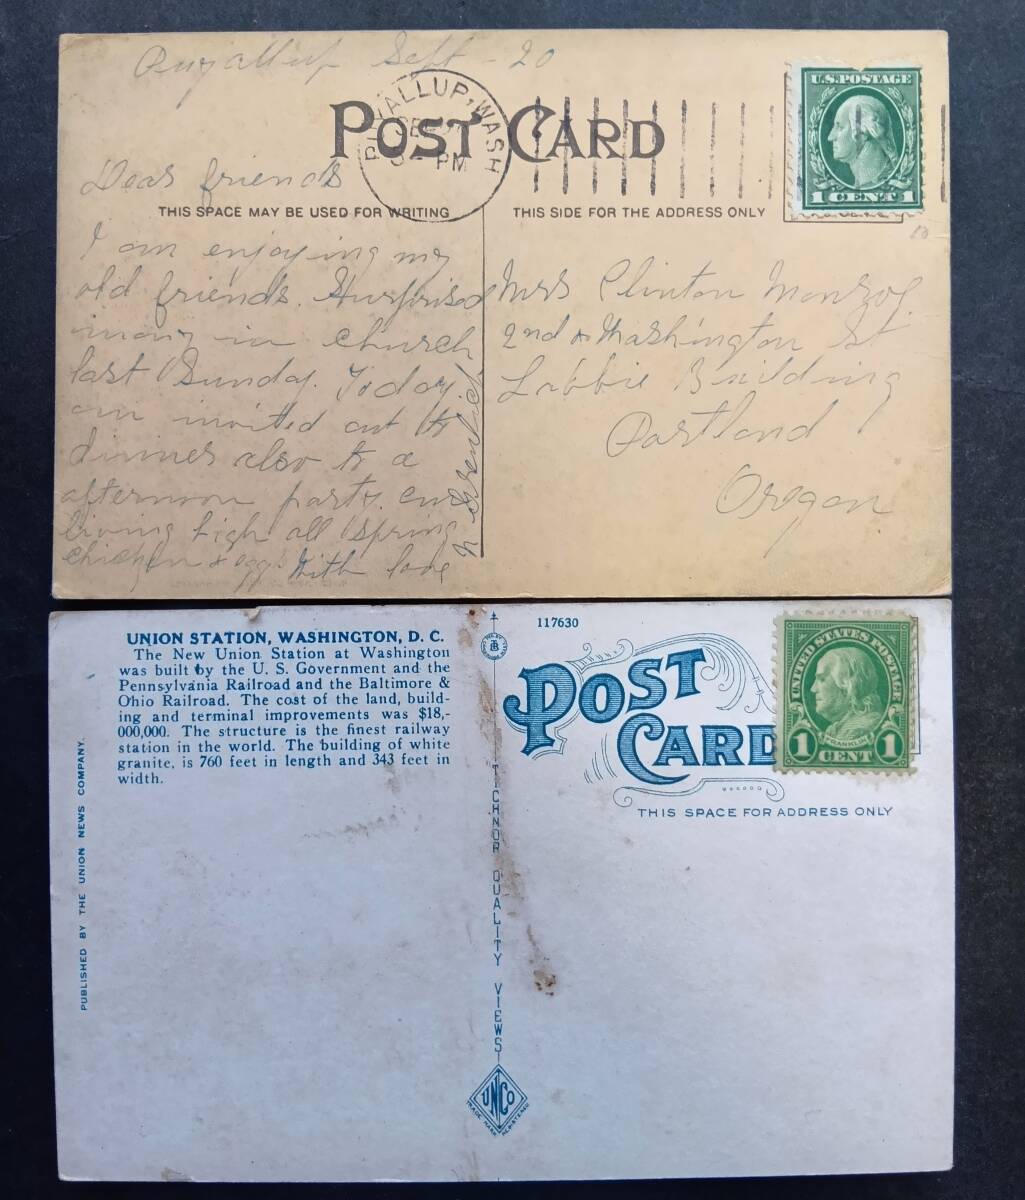 Puyallup Sept - 20
POST CARD
PUYALLUP, WASH
PM
U.S. POSTAGE
1 CENT 1
Dear friends
THIS SPACE MAY BE USED FOR WRITING
THIS SIDE FOR THE ADDRESS ONLY
I am enjoying my
old friends. Surprised
many in church
last Sunday. Today
am invited out to
dinner also to a
afternoon party. am
living high all spring
chicken & egg. With love
Mrs Clinton
2nd & Washington St
Labbie Building
Portland
Oregon
UNION STATION, WASHINGTON, D. C.
The New Union Station at Washington
was built by the U. S. Government and the
Pennsylvania Railroad and the Baltimore &
Ohio Railroad. The cost of the land, build-
ing and terminal improvements was $18,-
000,000. The structure is the finest railway
station in the world. The building of white
granite, is 760 feet in length and 343 feet in
width.
PUBLISHED BY THE UNION NEWS COMPANY.
TICHNOR QUALITY VIEWS
UNCO
TRADE MARK REGISTERED
117630
POST
CARD
UNITED STATES POSTAGE
FRANKLIN
1 CENT 1
THIS SPACE FOR ADDRESS ONLY